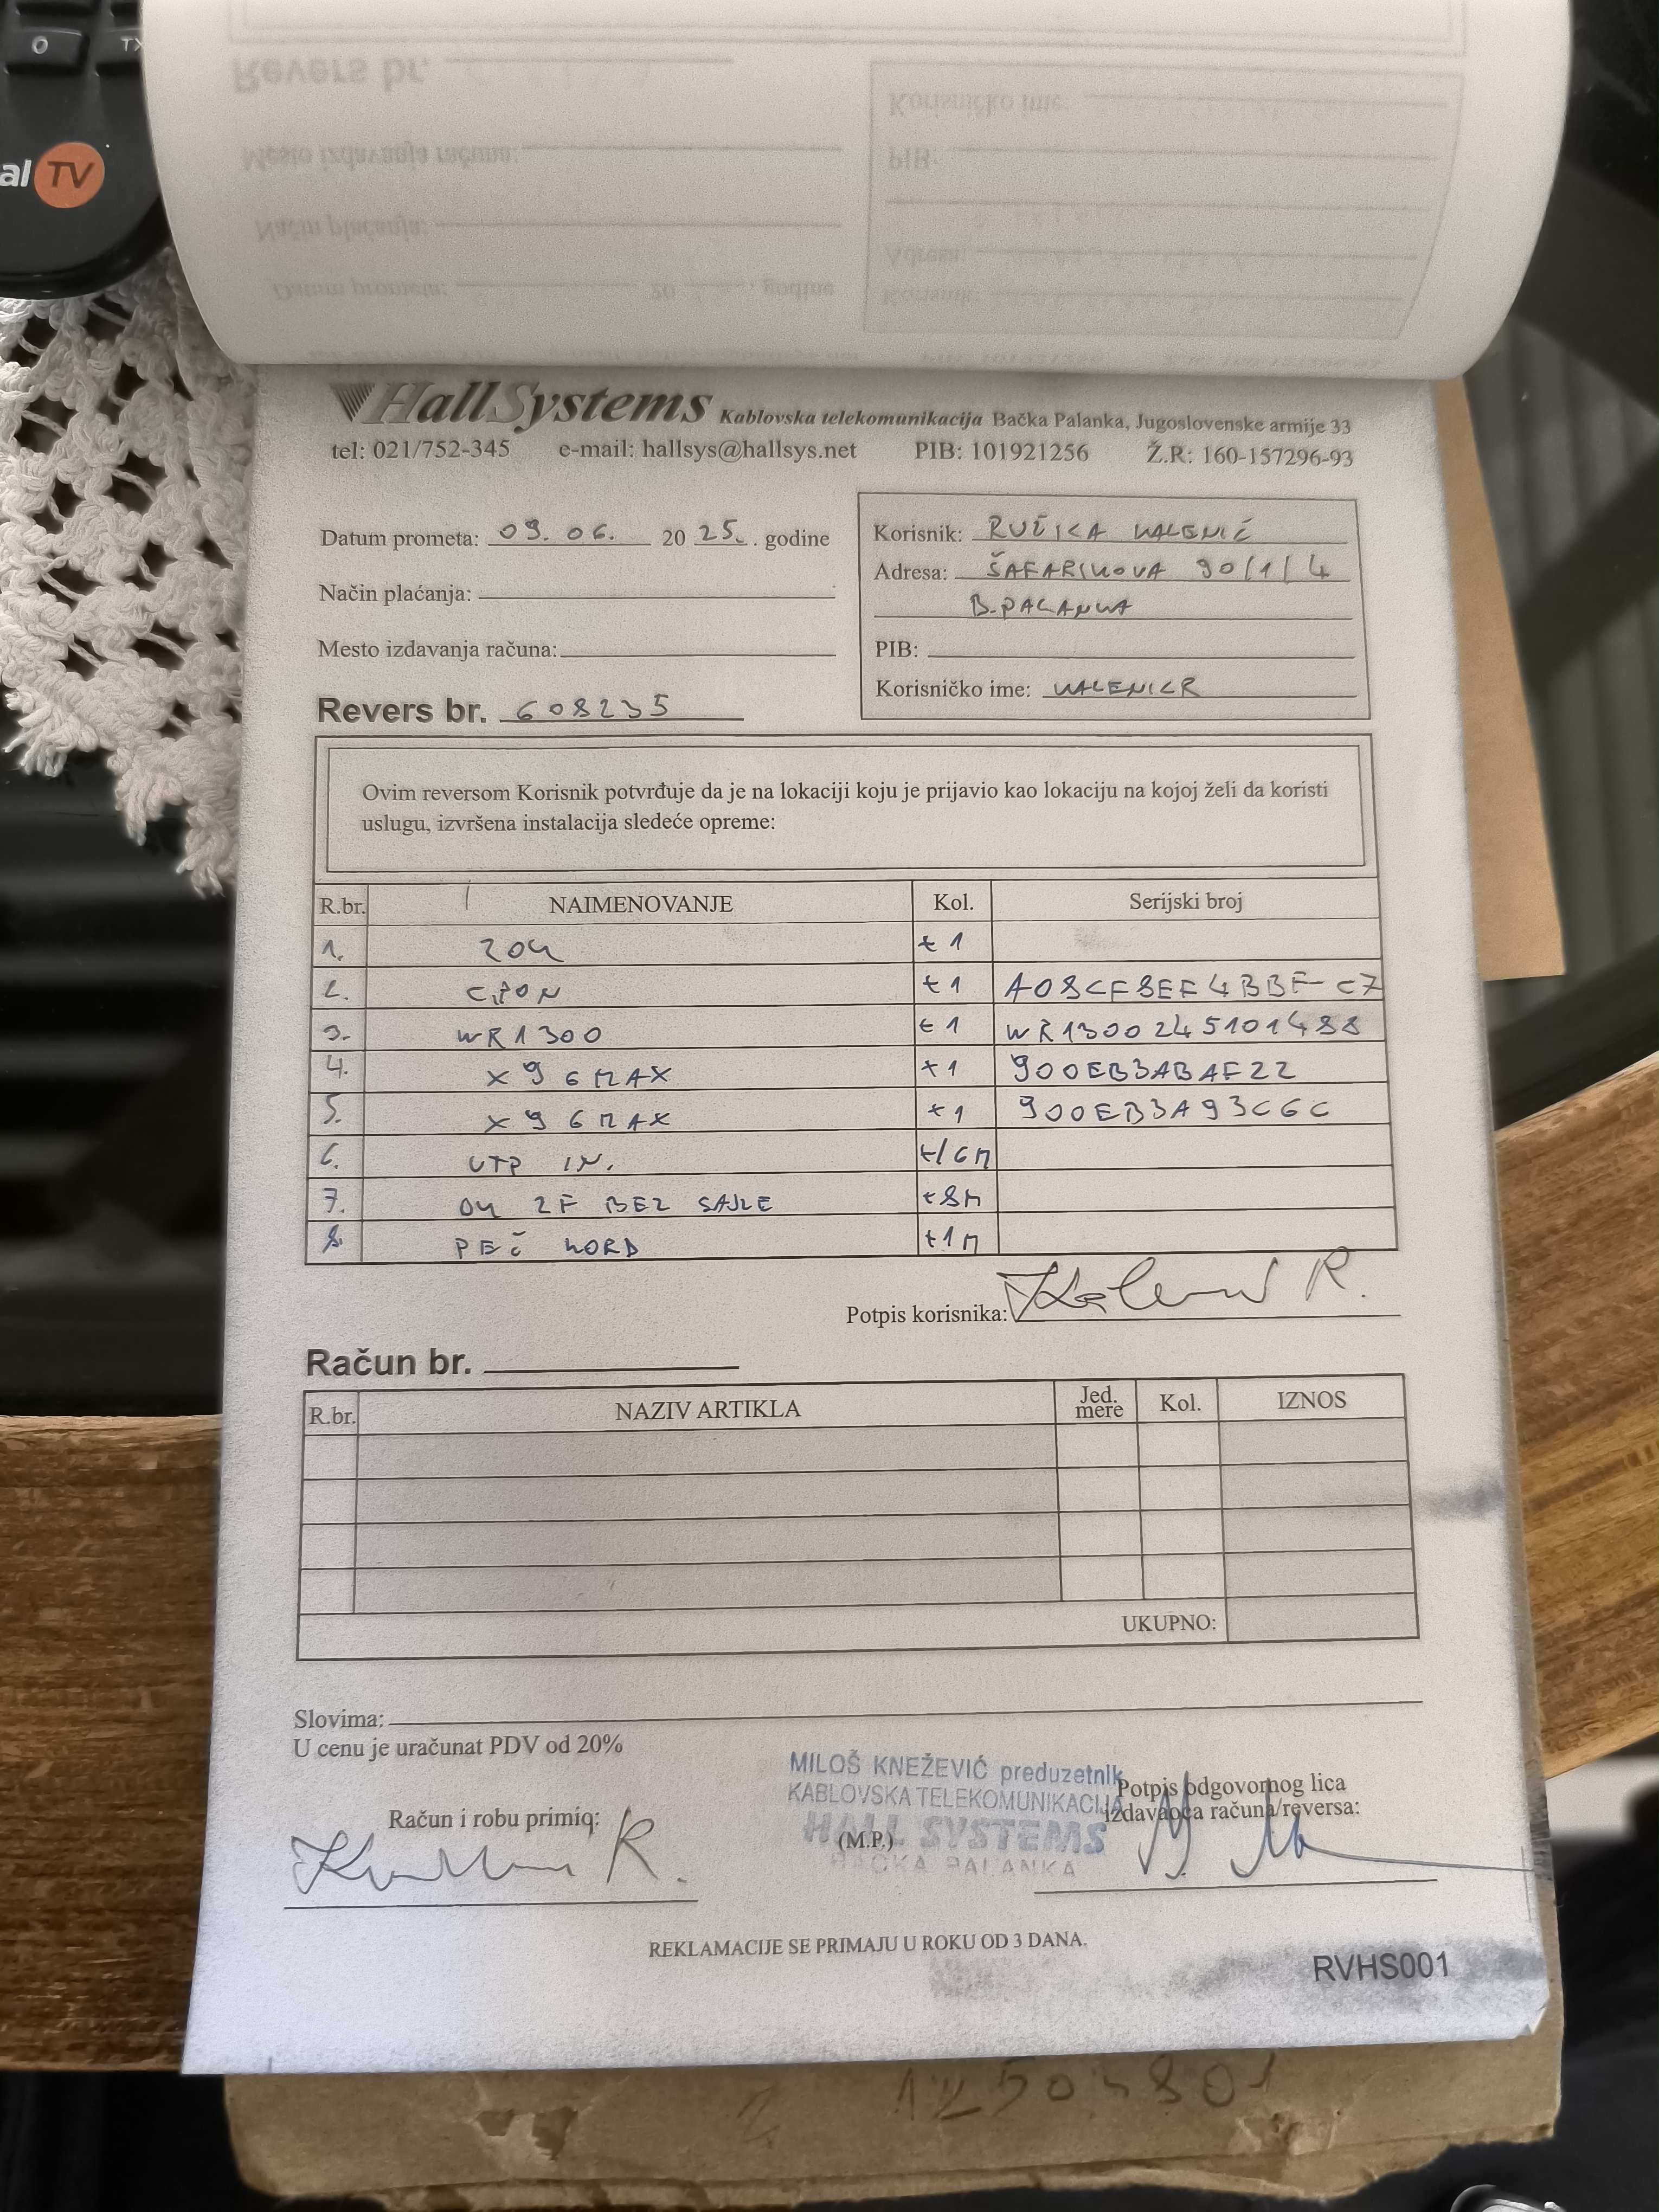 O TX
al TV
Revers br.
Korisničko ime:
Mesto izdavanja računa:
PIB:
Način plaćanja:
Adresa:
Datum prometa: 20 godine
Korisnik:
HallSystems Kablovska telekomunikacija Bačka Palanka, Jugoslovenske armije 33
tel: 021/752-345 e-mail: hallsys@hallsys.net PIB: 101921256 Ž.R: 160-157296-93
Datum prometa: 09. 06. 20 25. . godine
Korisnik: RUŽICA KALENIĆ
Adresa: ŠAFARIKOVA 90/1/4
B.PALANKA
Način plaćanja:
Mesto izdavanja računa:
PIB:
Korisničko ime: KALENICR
Revers br. 608235
Ovim reversom Korisnik potvrđuje da je na lokaciji koju je prijavio kao lokaciju na kojoj želi da koristi
uslugu, izvršena instalacija sledeće opreme:
R.br. NAIMENOVANJE Kol. Serijski broj
1. ZOK +1
2. GPON +1 A08CF8EF4BBF-C7
3. WR1300 +1 WR1300245101488
4. X96MAX +1 900EB3ABAF22
5. X96MAX +1 900EB3A93C6C
6. UTP IN. +16M
7. OK 2F BEZ SAJLE +8M
8. PEČ KORD +1M
Potpis korisnika: Kalenić R.
Račun br.
R.br. NAZIV ARTIKLA Jed. mere Kol. IZNOS
UKUPNO:
Slovima:
U cenu je uračunat PDV od 20%
MILOŠ KNEŽEVIĆ preduzetnik
KABLOVSKA TELEKOMUNIKACIJA
HALL SYSTEMS
BAČKA PALANKA
Račun i robu primio:
(M.P.)
Potpis odgovornog lica
izdavaoca računa/reversa:
REKLAMACIJE SE PRIMAJU U ROKU OD 3 DANA.
RVHS001